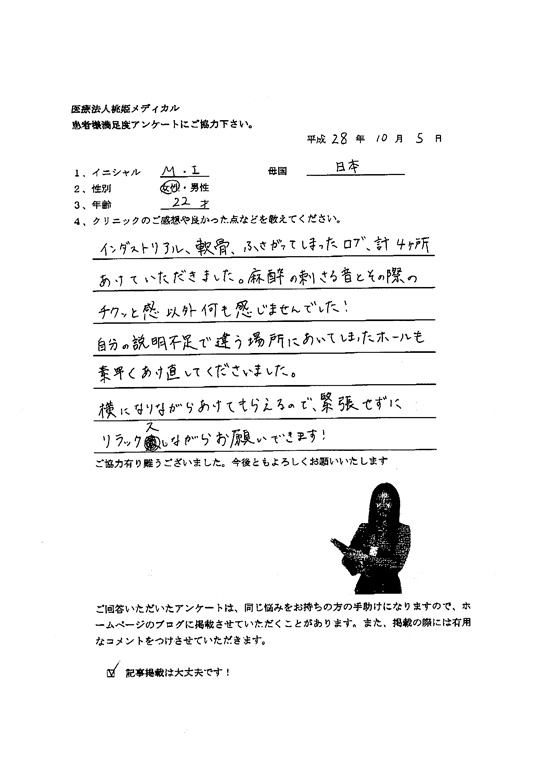 医療法人桃姫メディカル
患者様満足度アンケートにご協力下さい。
平成 28 年 10 月 5 日
1、イニシャル M・I 母国 日本
2、性別 女性・男性
3、年齢 22 才
4、クリニックのご感想や良かった点などを教えてください。
インダストリアル、軟骨、ふさがってしまったロブ、計4ヶ所
あけていただきました。麻酔の刺さる音とその際の
チクッと感以外何も感じませんでした!
自分の説明不足で違う場所にあいてしまったホールも
素早くあけ直してくださいました。
横になりながらあけてもらえるので、緊張せずに
リラックスしながらお願いできます!
ご協力有り難うございました。今後ともよろしくお願いいたします
ご回答いただいたアンケートは、同じ悩みをお持ちの方の手助けになりますので、ホ
ームページのブログに掲載させていただくことがあります。また、掲載の際には有用
なコメントをつけさせていただきます。
☑ 記事掲載は大丈夫です!